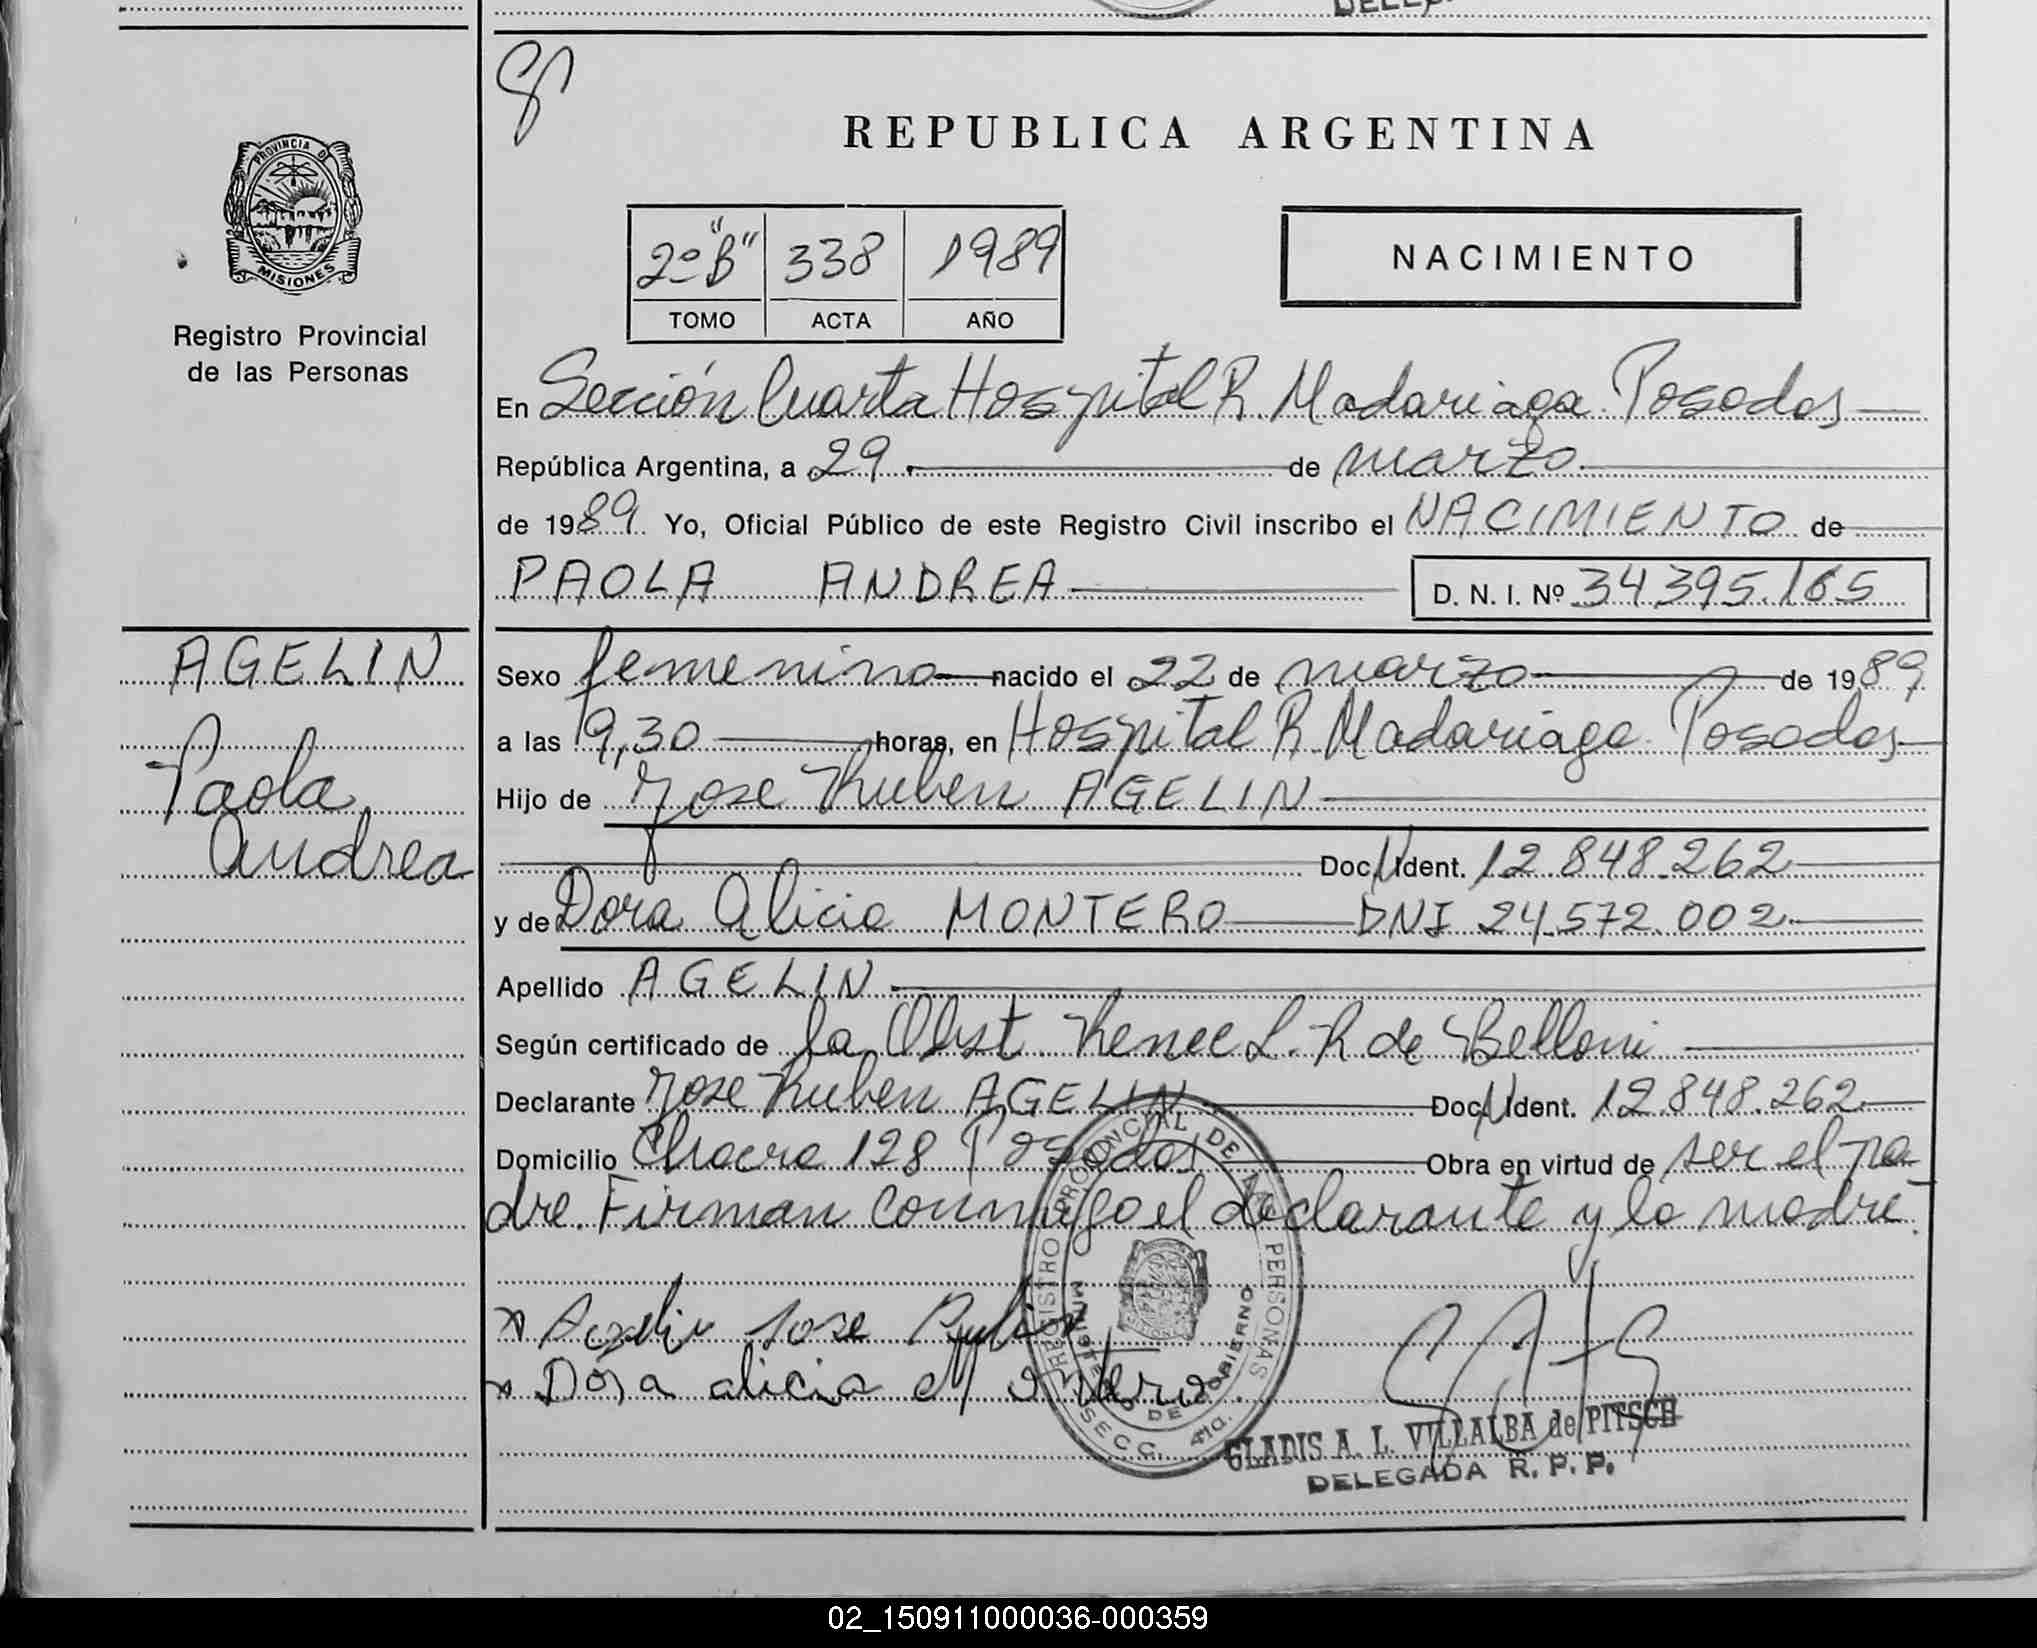 REPUBLICA ARGENTINA
PROVINCIA D
MISIONES
Registro Provincial
de las Personas
2º "B" 338 1989
TOMO ACTA AÑO
NACIMIENTO
En Sección Cuarta Hospital R. Madariaga. Posadas
República Argentina, a 29 de marzo
de 1989. Yo, Oficial Público de este Registro Civil inscribo el NACIMIENTO de
PAOLA ANDREA D. N. I. Nº 34.395.165
AGELIN
Paola
Andrea
Sexo femenino nacido el 22 de marzo de 1989
a las 19,30 horas, en Hospital R. Madariaga. Posadas
Hijo de Jose Ruben AGELIN
Doc. N Ident. 12.848.262
y de Dora Alicia MONTERO DNI 24.572.002
Apellido AGELIN
Según certificado de la Obst. Renee L. R de Belloni
Declarante Jose Ruben AGELIN Doc. N Ident. 12.848.262
Domicilio Chacra 128 Posadas Obra en virtud de ser el pa-
dre. Firman conmigo el declarante y la madre.
x Agelin Jose Ruben
x Dora alicia Montero.
REGISTRO PROVINCIAL DE LAS PERSONAS
MINISTERIO DE GOBIERNO
SECC. 4ta.
GLADIS A. L. VILLALBA de PITSCH
DELEGADA R. P. P.
02_150911000036-000359